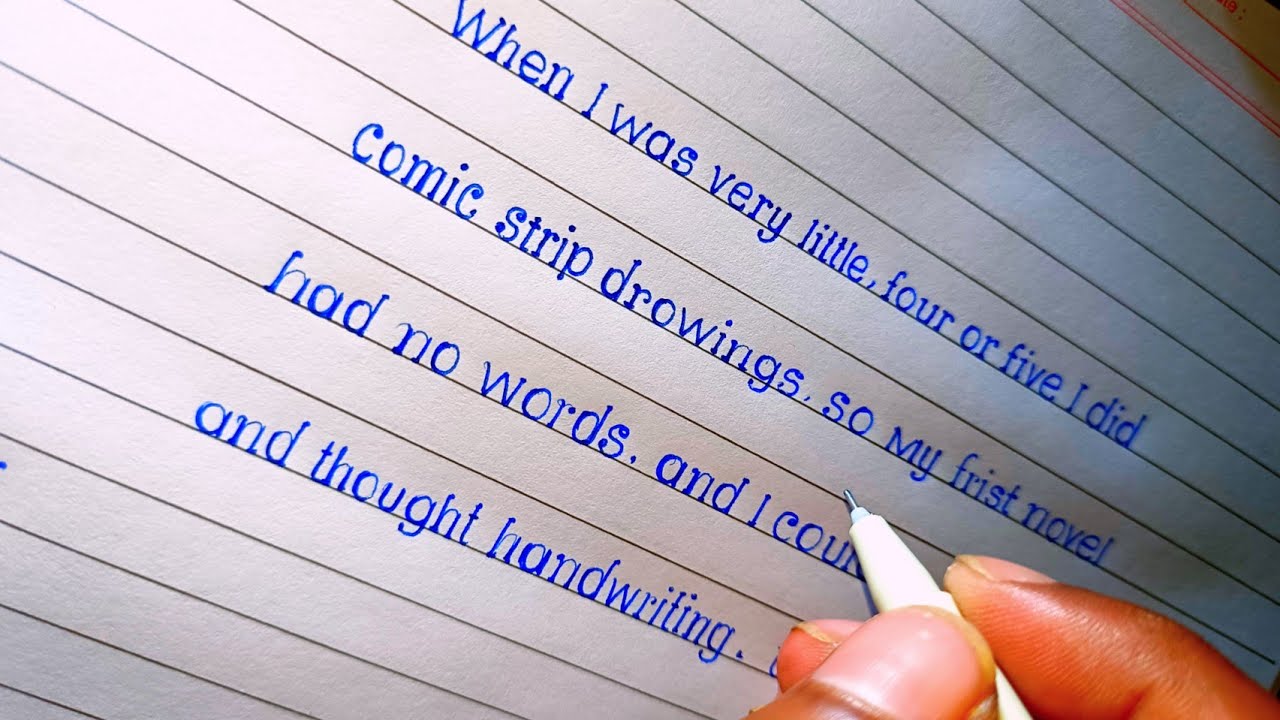 When I was very little, four or five I did
comic strip drowings, so My frist novel
had no words, and I
and thought handwriting.